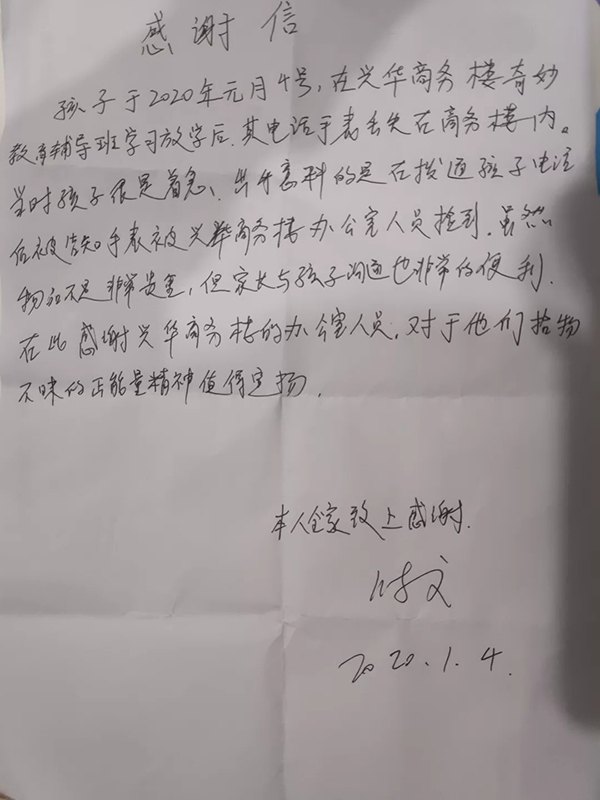 感谢信
孩子于2020年元月4号，在兴华商务楼奇妙
教育辅导班学习放学后，其电话手表丢失在商务楼内。
当时孩子很是着急、出乎意料的是在拨通孩子电话
后被告知手表被兴华商务楼办公室人员捡到。虽然
物品不是非常贵重，但家长与孩子沟通也非常的便利.
在此感谢兴华商务楼的办公室人员，对于他们拾物
不昧的正能量精神值得宣扬.
本人全家致上感谢.
2020.1.4.